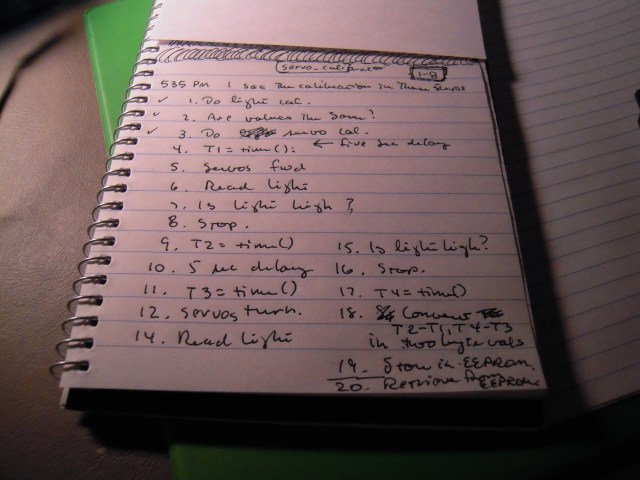 servo_calibrate
1-8
535 PM I see the calibration in these steps
✓ 1. Do light cal.
✓ 2. Are values the same?
✓ 3. Do servo cal.
4. T1 = time(); ← five sec delay
5. Servos fwd
6. Read light
7. Is light high?
8. Stop.
9. T2 = time()
10. 5 sec delay
11. T3 = time()
12. Servos turn.
14. Read light
15. Is light high?
16. Stop.
17. T4 = time()
18. Convert
T2-T1, T4-T3
in two byte vals
19. Store in EEPROM.
20. Retrieve from EEPROM.